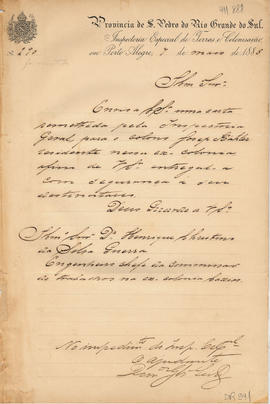 Provincia de S. Pedro do Rio Grande do Sul.
Inspectoria Especial de Terras e Colonisação
em Porto Alegre, 7 de maio de 1888
Illm Snr.
Envio a VSa uma carta
remettida pela Inspectoria
Geral, para o colono José
residente nessa ex-colonia
afim de VSa entregal-a
com segurança a seu
destinatario.
Deus Guarde a VSa
Illmo Snr Dr Henrique Christino
da Silva Guerra
Engenheiro chefe da commissão
de trabalhos na ex-colonia Caxias
No impedimto do Insp.
o ajudante
DR 391